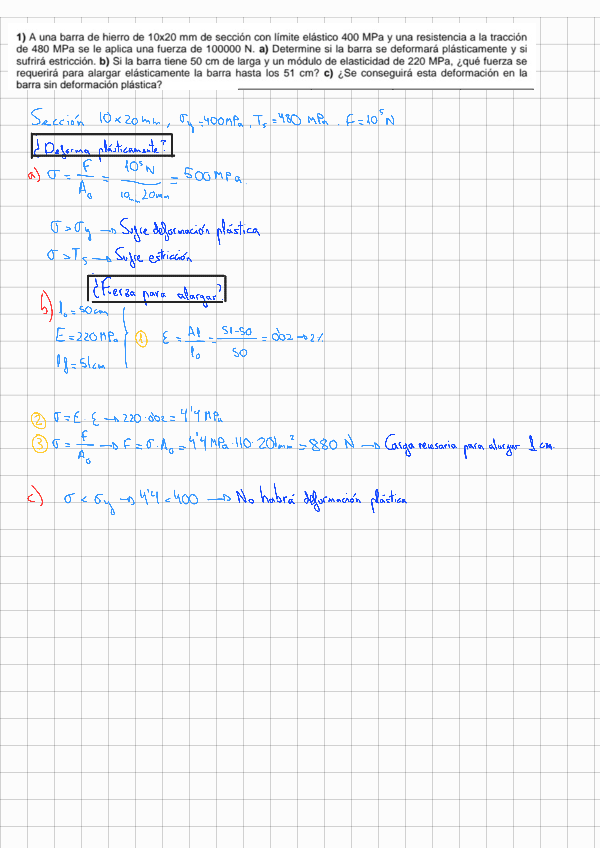 1) A una barra de hierro de 10x20 mm de sección con límite elástico 400 MPa y una resistencia a la tracción
de 480 MPa se le aplica una fuerza de 100000 N. a) Determine si la barra se deformará plásticamente y si
sufrirá estricción. b) Si la barra tiene 50 cm de larga y un módulo de elasticidad de 220 MPa, ¿qué fuerza se
requerirá para alargar elásticamente la barra hasta los 51 cm? c) ¿Se conseguirá esta deformación en la
barra sin deformación plástica?
Sección 10×20mm, σy=400MPa, Ts=480 MPa. F=10⁵N
¿Deforma plásticamente?
a) σ = F/A₀ = 10⁵N/10mm·20mm = 500MPa.
σ>σy → Sufre deformación plástica
σ>Ts → Sufre estricción
¿Fuerza para alargar?
b) l₀=50cm
E=220MPa ① ε = Δl/l₀ = 51-50/50 = 0'02→2%
lf=51cm
② σ=E·ε → 220·0'02 = 4'4 MPa
③ σ = F/A₀ → F=σ·A₀ = 4'4 MPa·|10·20|mm² = 880 N → Carga necesaria para alargar 1 cm.
c) σ < σy → 4'4<400 → No habrá deformación plástica